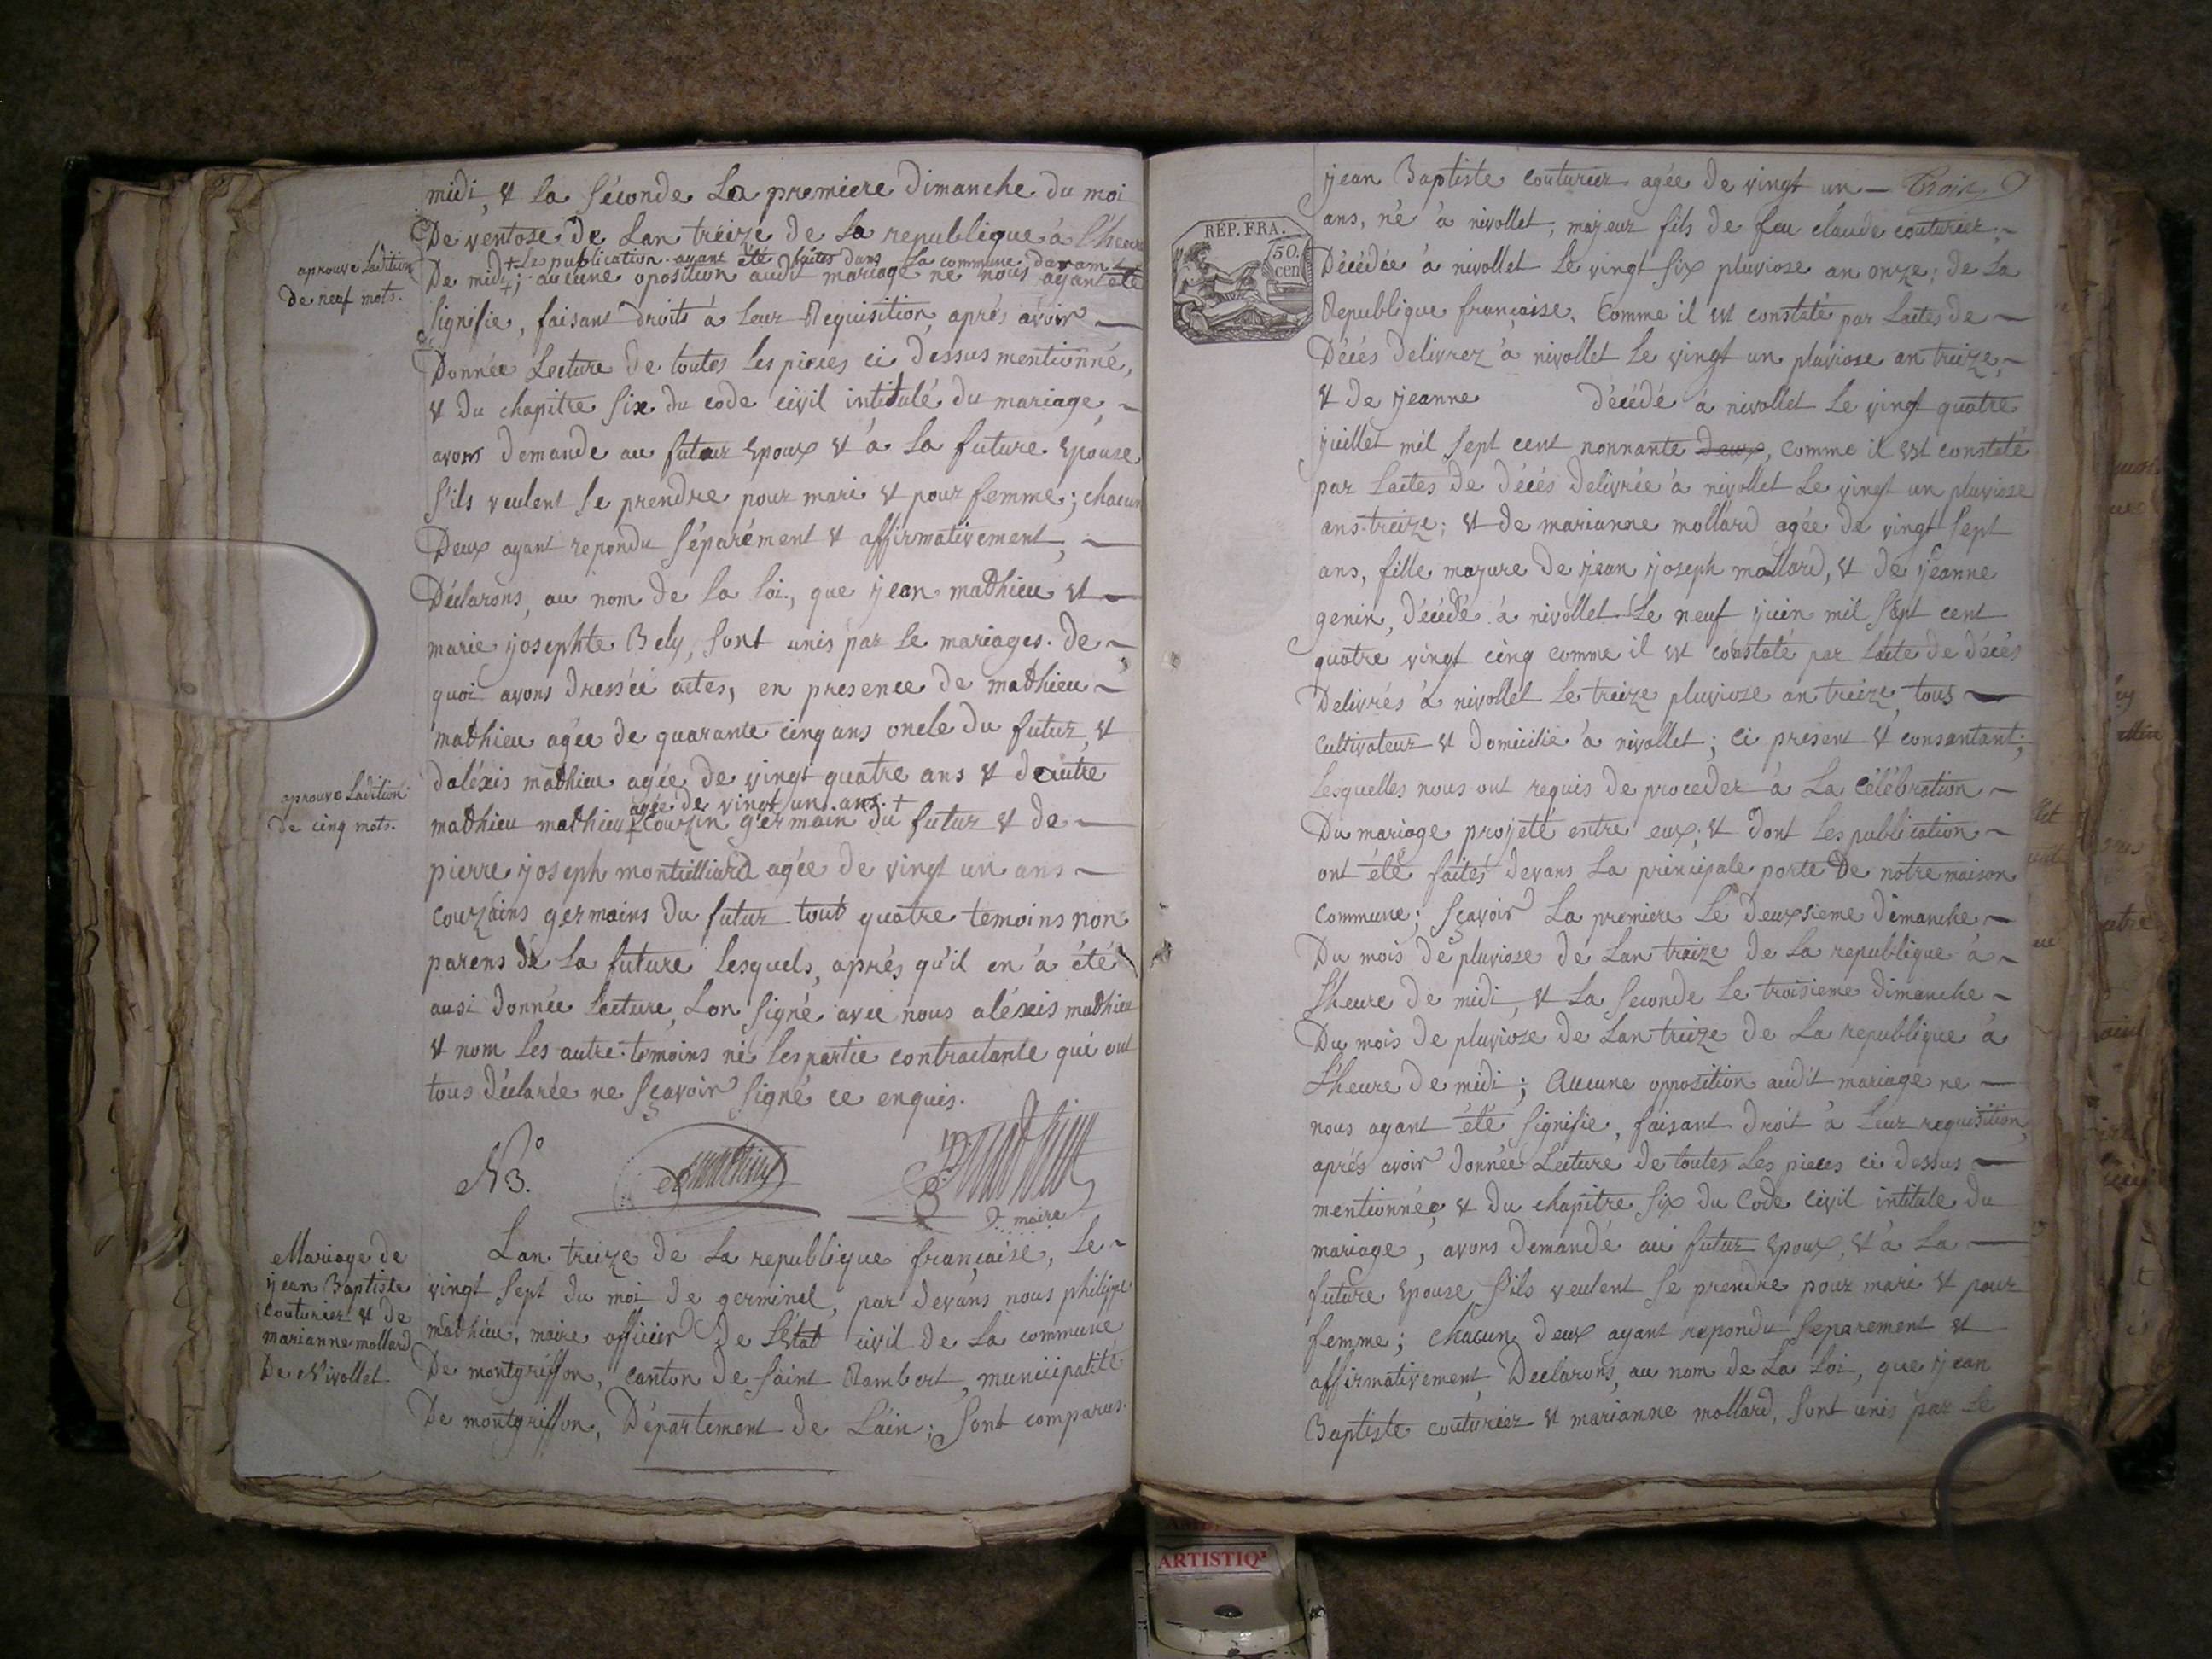 midi, & la séconde La premiere dimanche du moi
De ventose de Lan tréize de la republique à l'heure
+ Le publication ayant été faites dans la commune daram +
aprouve Ladition
de neuf mots.
De midi +; aucune oposition audit mariage ne nous ayant été
signifie, faisant droits à leur Requisition, aprés avoir
Donnée Lecture de toutes les pieces ci dessus mentionné,
& du chapitre six du code civil intitulé du mariage,
avons demande au futur Epoux & à la future Epouse
s'ils veulent se prendre pour mari & pour femme; chacun
Deux ayant repondu séparément & affirmativement,
Déclarons, au nom de la loi, que jean mathieu &
marie josephte Bely, sont unis par le mariages. de
quoi avons dressée actes, en presence de mathieu
mathieu agée de quarante cinq ans oncle du futur, &
daléxis mathieu agée de vingt quatre ans & d'autre
aprouve Ladition
de cinq mots.
agée de vingt un ans +
mathieu mathieu + couzin germain du futur & de
pierre joseph montilliard agée de vingt un ans
couzains germains du futur tout quatre temoins non
parens de la future lesquels, aprés qu'il en à été
ausi donnée lecture, Lon signé avec nous aléxis mathieu
& nom les autre temoins ni les partie contractante qui ont
tous déclarée ne sçavoir signé ce enquis.
N°3.
mathieu
maire
Mariage de
jean Baptiste
couturier & de
marianne mollard
De Nivollet
Lan treize de la republique française, le
vingt sept du moi de germinal, par devans nous philippe
mathieu, maire officier de L'état civil de la commune
De montgriffon, canton de saint Rambert, municipalité
De montgriffon, Département de L'ain; sont comparus.
jean Baptiste couturier agée de vingt un Trois
REP. FRA.
50
cen
ans, né à nivollet, majeur fils de feu claude couturier,
Décédée à nivollet Le vingt six pluviose an onze; de la
Republique française. Comme il est constaté par lactes de
Décés delivrez à nivollet le vingt un pluviose an treize,
& de jeanne décédé à nivollet le vingt quatre
juillet mil sept cent nonnante deux, comme il est constaté
par lactes de décés delivrée à nivollet Le vingt un pluviose
ans treize; & de marianne mollard agée de vingt sept
ans, fille majure de jean joseph mollard, & de jeanne
genin, décédé à nivollet Le neuf juin mil sept cent
quatre vingt cinq comme il est constaté par lacte de décés
Delivrés à nivollet le treize pluviose an treize, tous
Cultivateur & domicilié à nivollet; ci present & consantant;
Lesquelles nous ont requis de proceder à La célébration
Du mariage projeté entre eux; & dont les publication
ont été faites devans La principale porte De notre maison
Commune; sçavoir La premiere Le deuxsieme dimanche
Du mois de pluviose de Lan treize de la republique à
l'heure de midi, & La seconde Le troisieme dimanche
Du mois de pluviose de Lan treize de La republique à
L'heure de midi; Aucune opposition audit mariage ne
nous ayant été signifie, faisant droit à Leur requisition,
aprés avoir donnée Lecture de toutes les pieces ci dessus
mentionnée & du chapitre six du Code civil intitule du
mariage, avons demandé au futur Epoux, & à La
future Epouse, s'ils veulent se prendre pour mari & pour
femme; chacun deux ayant repondu separement &
affirmativement, Declarons, au nom de La loi, que jean
Baptiste couturier & marianne mollard, sont unis par le
ARTISTIQ